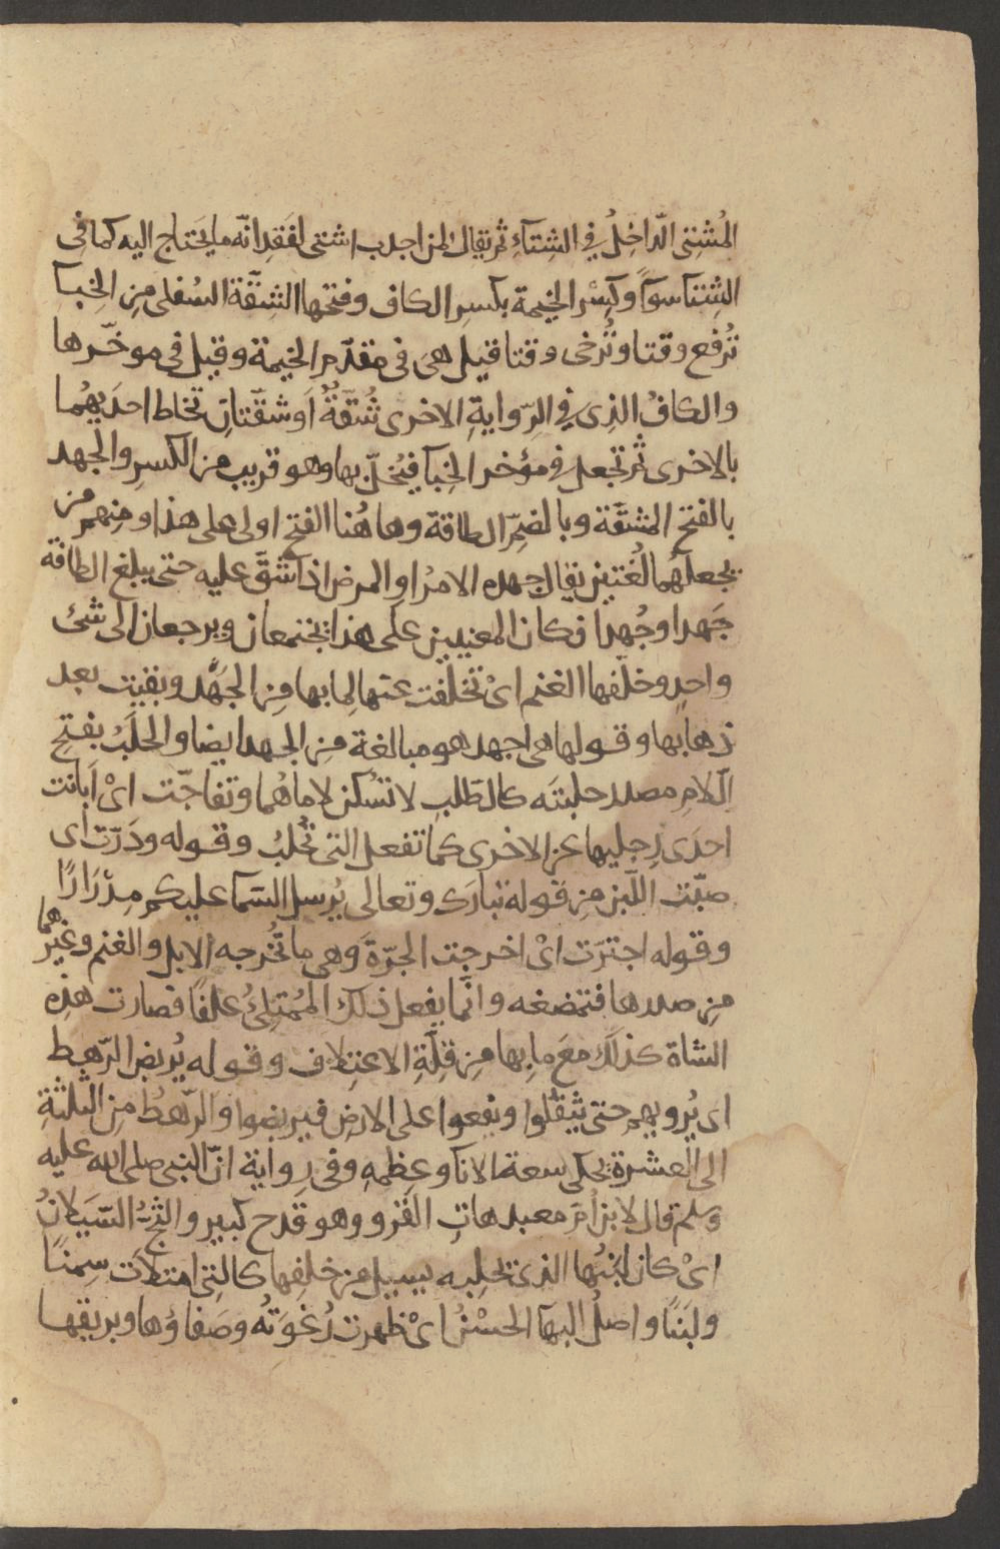 المُشتِى الدّاخِلُ فِي الشِتآءِ ثم يقال لمن اجدب اشتى لفَقدِانّه ما يحتاج اليه كما فِى
الشِتا سوآءً وكِسْر الخيمة بكسرِ الكاف وفتحها الشقّة السُفلى مِن الخِبآ
تُرفع وقتا وتُرخى وقتا قيل هىَ فى مقدّم الخيمة وقيل فى موخّرها
والكافُ الذِى فِي الرِّوايةِ الاخرى شُقّةٌ اَو شقّتانِ تخاط احدَيهُما
بالاخرى ثم تجعل فى مؤخر الخِبا فيُخلّ بها وهو قريب من الكسرِ والجَهد
بالفتح المشقّة وبالضمِّ الطاقة وهاهُنا الفتح اولى على هذا ومِنهم من
يجعلهُما لُغتين يقال جهده الامرُ او المرض اذا شقّ عليه حتى يبلغ الطاقة
جَهدا وجُهدا فكان المعنيين على هذا يجتمعان ويرجعان الى شئ
واحِدٍ وخلّفها الغنم اىْ تخلّفت عنها لِما بها مِن الجَهْد وبقيت بعد
ذهابها وقولها هى اجهد هو مبالغة مِن الجهد ايضا والحلَبُ بفتحِ
اللّامِ مصدر حلبتَه كالطَلبِ لا تسُكن لاماهُما وتفاجّت اىْ اَبانت
احدَى رِجليها عن الاخرى كما تفعل التى تُحلبُ وقوله ودَرّت اى
صبّت اللّبن مِن قوله تبارَك وتعالى يُرسل السّما عليكم مِدْرَارًا
وقوله اجترَت اىْ اخرجت الجرّة وهى ما تُخرجه الابل والغنم وغيرهما
مِن صدرها فتمضغه وانّما يفعل ذلك المُمتلِئُ علفًا فصارت هذِه
الشاة كذلك معَ ما بها مِن قِلّةِ الاعتِلاف وقوله يُربض الرّهط
اى يُرويهم حتى يثقُلوا ويقعوا على الارض فيربضوا والرّهطُ مِن الثلثةِ
الى العشرة يحكى سعة الانآ وعظمهِ وفى رِواية انّ النبى صلى الله عليه
وسلم قال لابن اُمّ معبد هاتِ القَرو وهو قدح كبير والثجّ السَيَلانُ
اىْ كان لبَنُها الذى تحلبه يسيل من خلفِها كالتِى امتلأت سِمنًا
ولبَنًا واصلُ البهآ الحُسْنُ اىْ ظهرت رُغوَتُه وصَفاؤها وبريقها